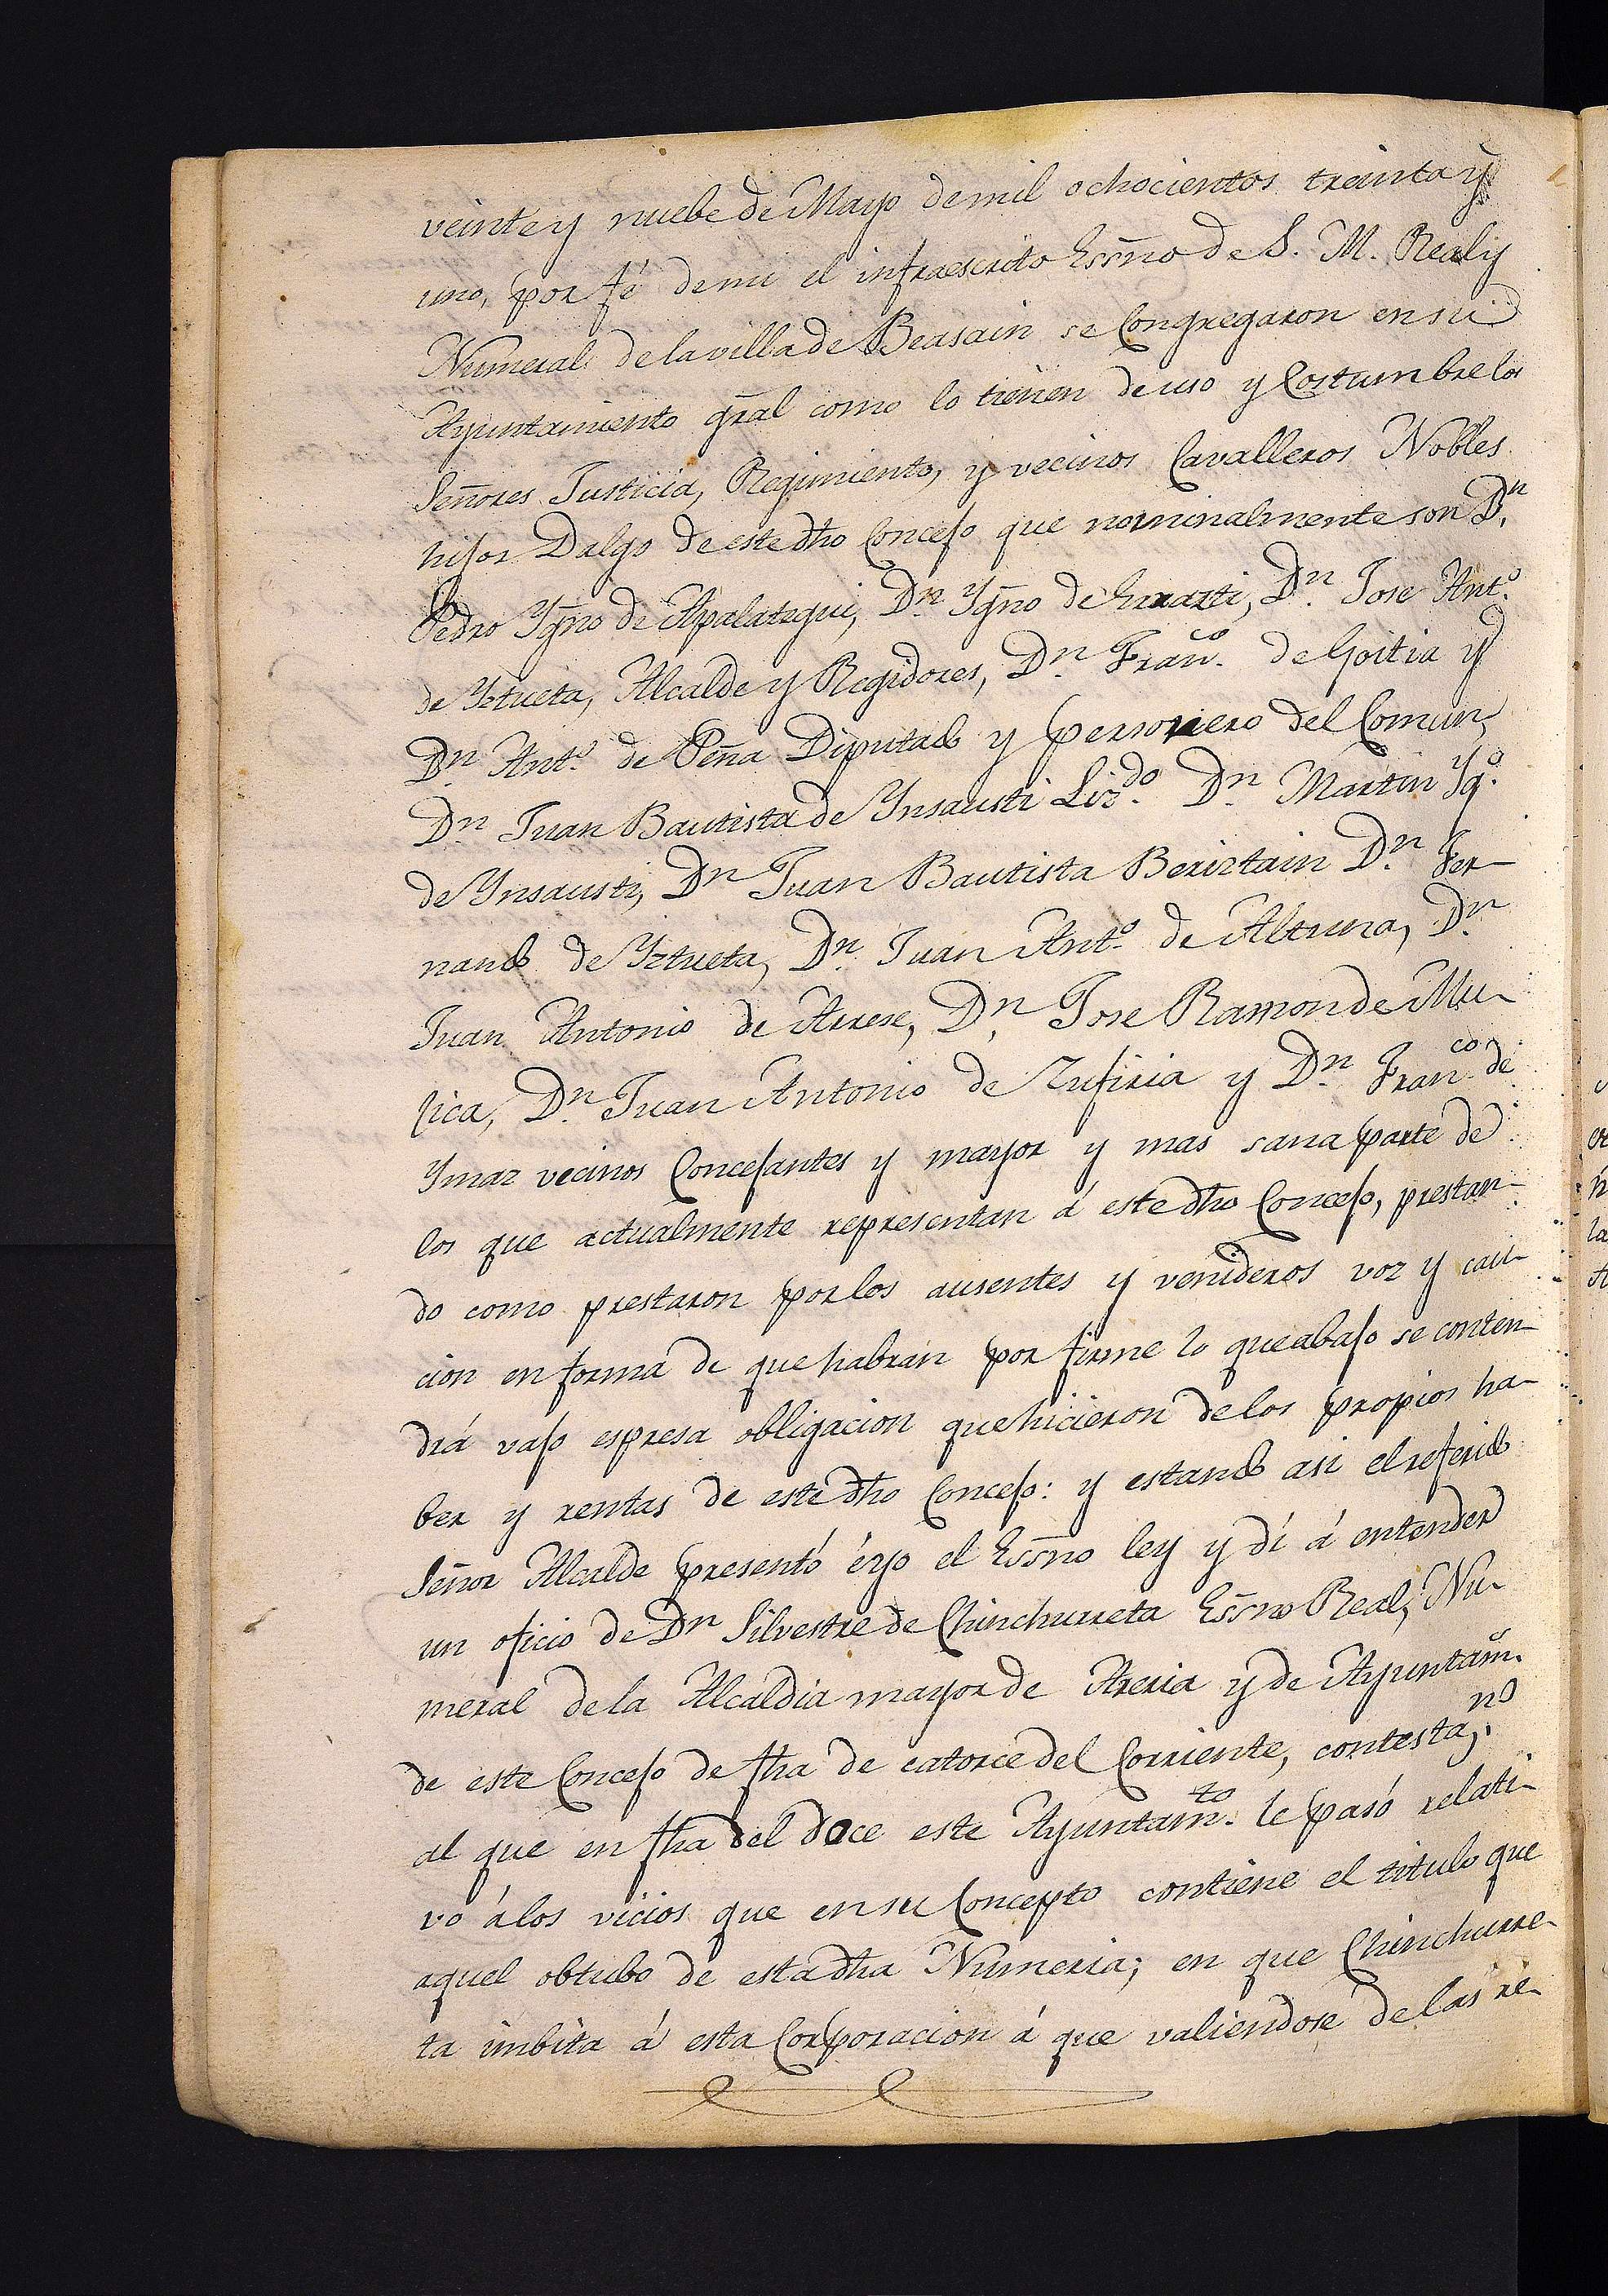 veinte y nuebe de Mayo de mil ochocientos treinta y
uno, por fé de mi el infraescrito Essño de S. M. Real y
Numeral de la villa de Beasain se Congregaron en su
Ayuntamiento gñal como lo tienen de uso y Costumbre los
Señores Justicia, Regimiento, y vecinos Cavalleros Nobles
hijos Dalgo de este dho Concejo que nominalmente son Dn.
Pedro Ygño de Apalategui, Dn. Ygño de Errazti, Dn. Jose Anto.
de Yztueta, Alcalde y Regidores, Dn. Franco. de Goitia y
Dn. Anto. de Peña Diputado y personero del Comun,
Dn. Juan Bautista de Ynsausti Lizdo. Dn. Martin Ygo.
de Ynsausti, Dn. Juan Bautista Beriztain Dn. Fer-
nando de Yztueta, Dn. Juan Anto. de Altuna, Dn.
Juan Antonio de Arrese, Dn. Jose Ramon de Mu-
jica, Dn. Juan Antonio de Zufiria y Dn. Franco. de
Ymaz vecinos Concejantes y mayor y mas sana parte de
los que actualmente representan á este dho Concejo, prestan-
do como prestaron por los ausentes y venideros voz y cau-
cion en forma de que habran por firme lo que abajo se conten-
drá vajo espresa obligacion que hicieron de los propios ha-
ber y rentas de este dho Concejo: y estando asi el referido
Señor Alcalde presentó é yo el Essño ley y dí á entender
un oficio de Dn. Silvestre de Chinchurreta Essño Real, Nu-
meral de la Alcaldia mayor de Areria y de Ayuntam̃.
de este Concejo de fha de catorce del Corriente, contestano.
al que en fha del doce este Ayuntamto. le pasó relati-
vo á los vicios que en su Concepto contiene el titulo que
aquel obtubo de esta dha Numeria; en que Chinchurre-
ta imbita á esta Corporacion á que valiendose de las re-